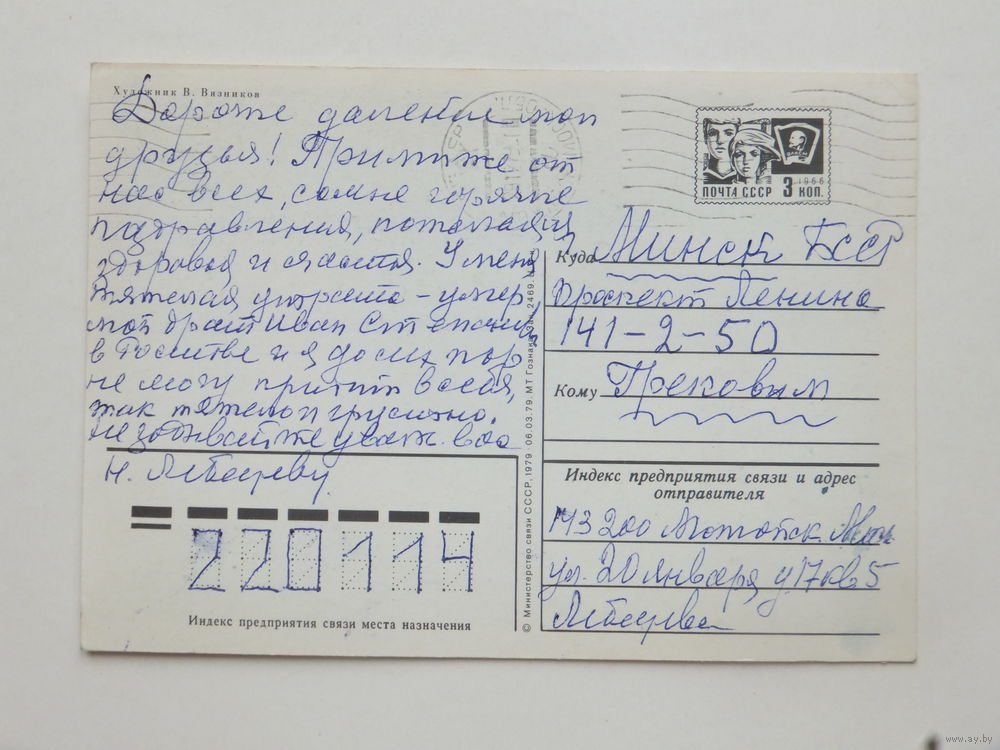 Художник В. Вязников
Дорогие далекие мои
друзья! Примите от
нас всех, самые горячие
поздравления, пожелания
здоровья и счастья. У меня
тяжелая утрата - умер
мой брат Иван Степаныч
в Ростве и я до сих пор
не могу прийти в себя,
так тяжело и грустно.
Не забывайте уваж. вас
Н. Лебедеву
ПОЧТА СССР 3 КОП.
1966
ВЛКСМ
Куда Минск БССР
проспект Ленина
141-2-50
Кому Грековым
Индекс предприятия связи и адрес
отправителя
143200 Можайск Моск
ул. 20 Января д 17 кв 5
Лебедева
220114
Индекс предприятия связи места назначения
© Министерство связи СССР, 1979 06.03.79. МТ Гознака. Зак. 2469.
www.ay.by